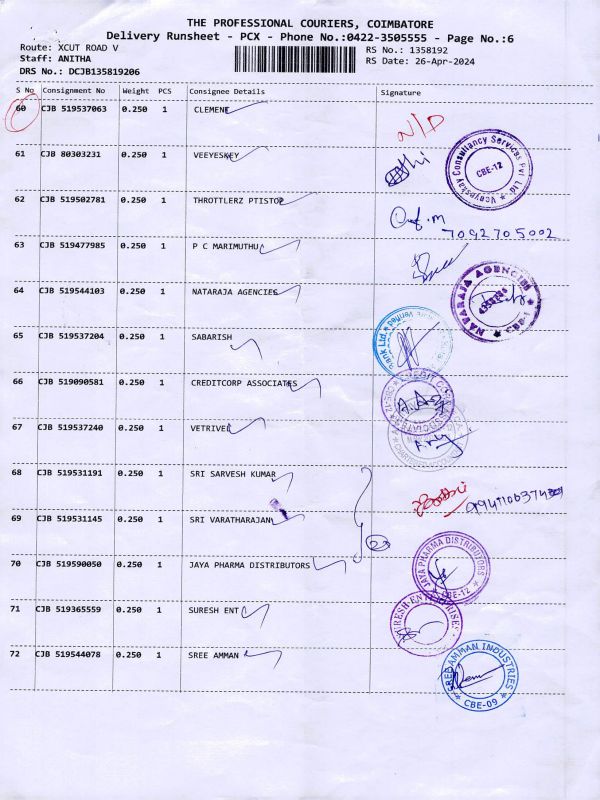 THE PROFESSIONAL COURIERS, COIMBATORE
Delivery Runsheet - PCX - Phone No.:0422-3505555 - Page No.:6
Route: XCUT ROAD V
RS No.: 1358192
Staff: ANITHA
RS Date: 26-Apr-2024
DRS No.: DCJB135819206
S No Consignment No Weight PCS Consignee Details Signature
60 CJB 519537063 0.250 1 CLEMENT
N/D
61 CJB 80303231 0.250 1 VEEYESKEY
Veeyeskay Consultancy Services Pvt Ltd CBE-12
62 CJB 519502781 0.250 1 THROTTLERZ PTISTOP
7092705002
63 CJB 519477985 0.250 1 P C MARIMUTHU
64 CJB 519544103 0.250 1 NATARAJA AGENCIES
NATARAJA AGENCIES
65 CJB 519537204 0.250 1 SABARISH
Bank Ltd. Verified
66 CJB 519090581 0.250 1 CREDITCORP ASSOCIATES
CREDIT CORP ASSOCIATES CBE-12
67 CJB 519537240 0.250 1 VETRIVEL
68 CJB 519531191 0.250 1 SRI SARVESH KUMAR
69 CJB 519531145 0.250 1 SRI VARATHARAJAN
70 CJB 519590050 0.250 1 JAYA PHARMA DISTRIBUTORS
JAYA PHARMA DISTRIBUTORS CBE-12
71 CJB 519365559 0.250 1 SURESH ENT
SURESH ENTERPRISES
72 CJB 519544078 0.250 1 SREE AMMAN
SREE AMMAN INDUSTRIES CBE-09